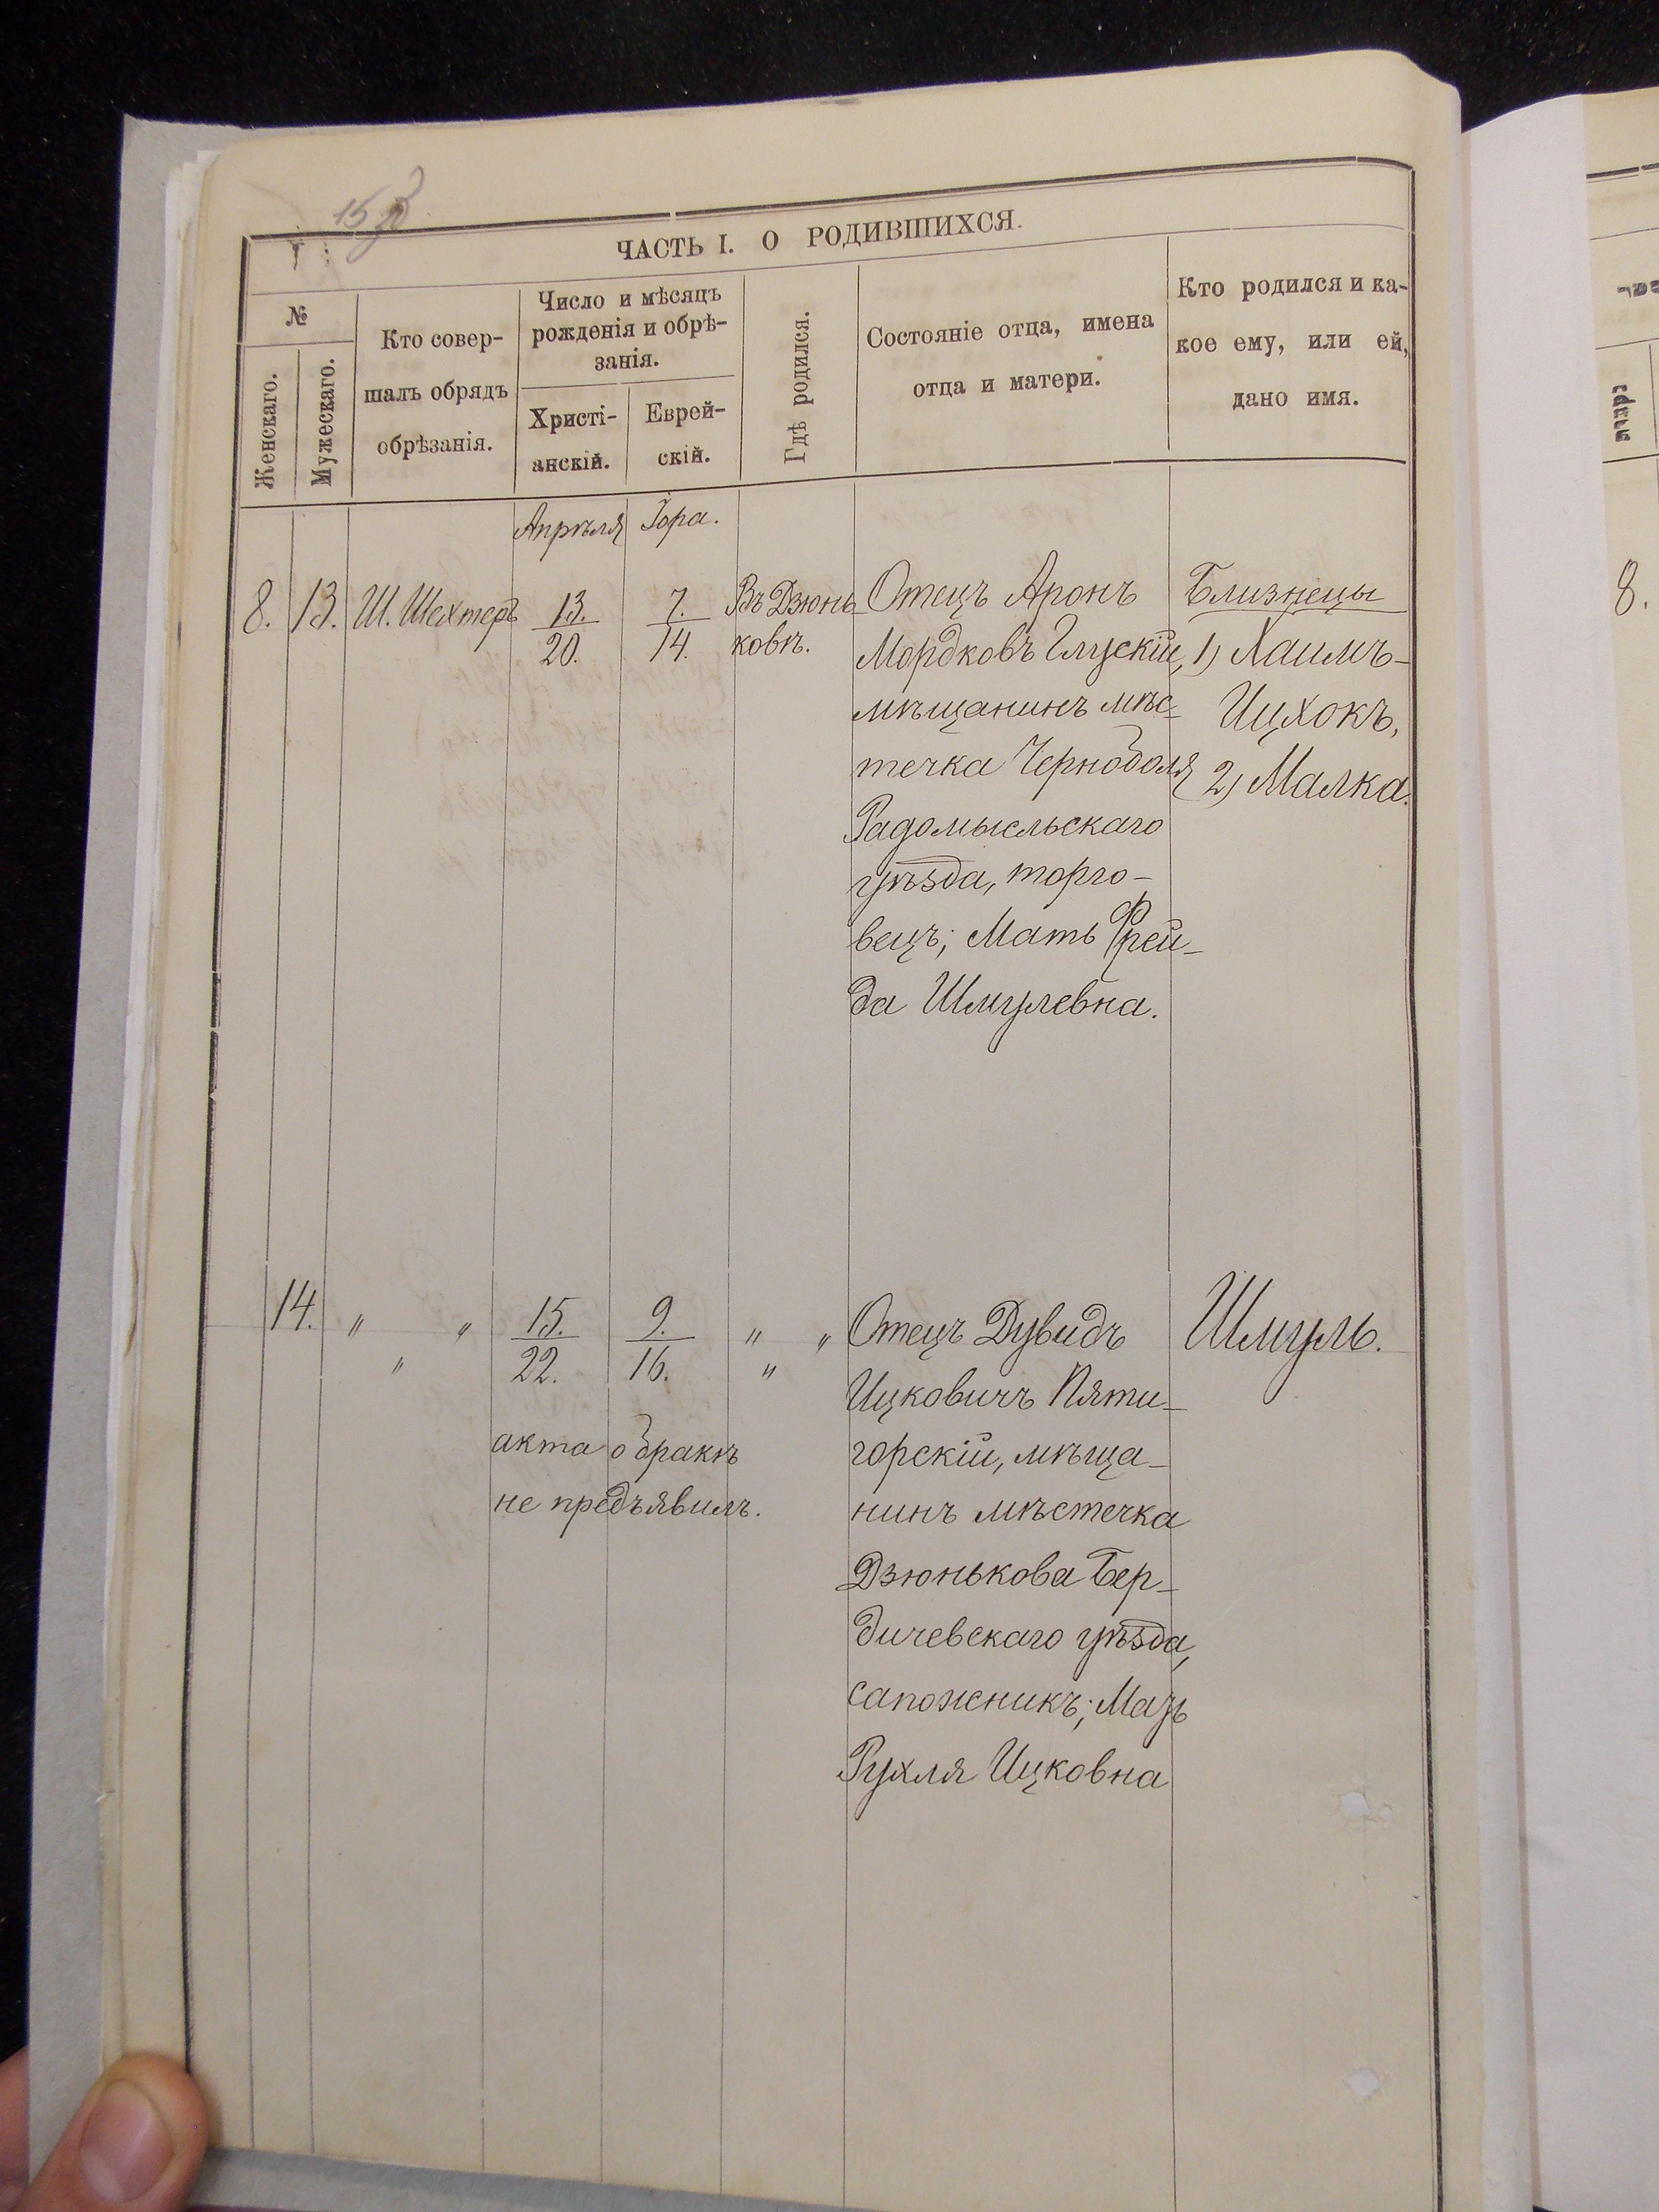 ЧАСТЬ I. О РОДИВШИХСЯ.
№
Женскаго.
Мужескаго.
Кто совер-
шалъ обрядъ
обрѣзанія.
Число и мѣсяцъ
рожденія и обрѣ-
занія.
Христі-
анскій.
Еврей-
скій.
Гдѣ родился.
Состояніе отца, имена
отца и матери.
Кто родился и ка-
кое ему, или ей,
дано имя.
Апрѣля
Іора.
8.
13.
Ш. Шехтеръ
13.
20.
7.
14.
Въ Дзюнь
ковѣ.
Отецъ Аронъ
Мордковъ Глускій,
мѣщанинъ мѣс-
течка Чернобыля
Радомысльскаго
уѣзда, торго-
вецъ; Мать Фрей-
да Шмулевна.
Близнецы
1) Хаимъ-
Ицхокъ,
2) Малка.
14.
" "
"
15.
22.
9.
16.
" "
"
акта о бракѣ
не предъявилъ.
Отецъ Дувидъ
Ицковичъ Пяти-
горскій, мѣща-
нинъ мѣстечка
Дзюнькова Бер-
дичевскаго уѣзда,
сапожникъ; Мать
Рухля Ицковна
Шмуль.
8.